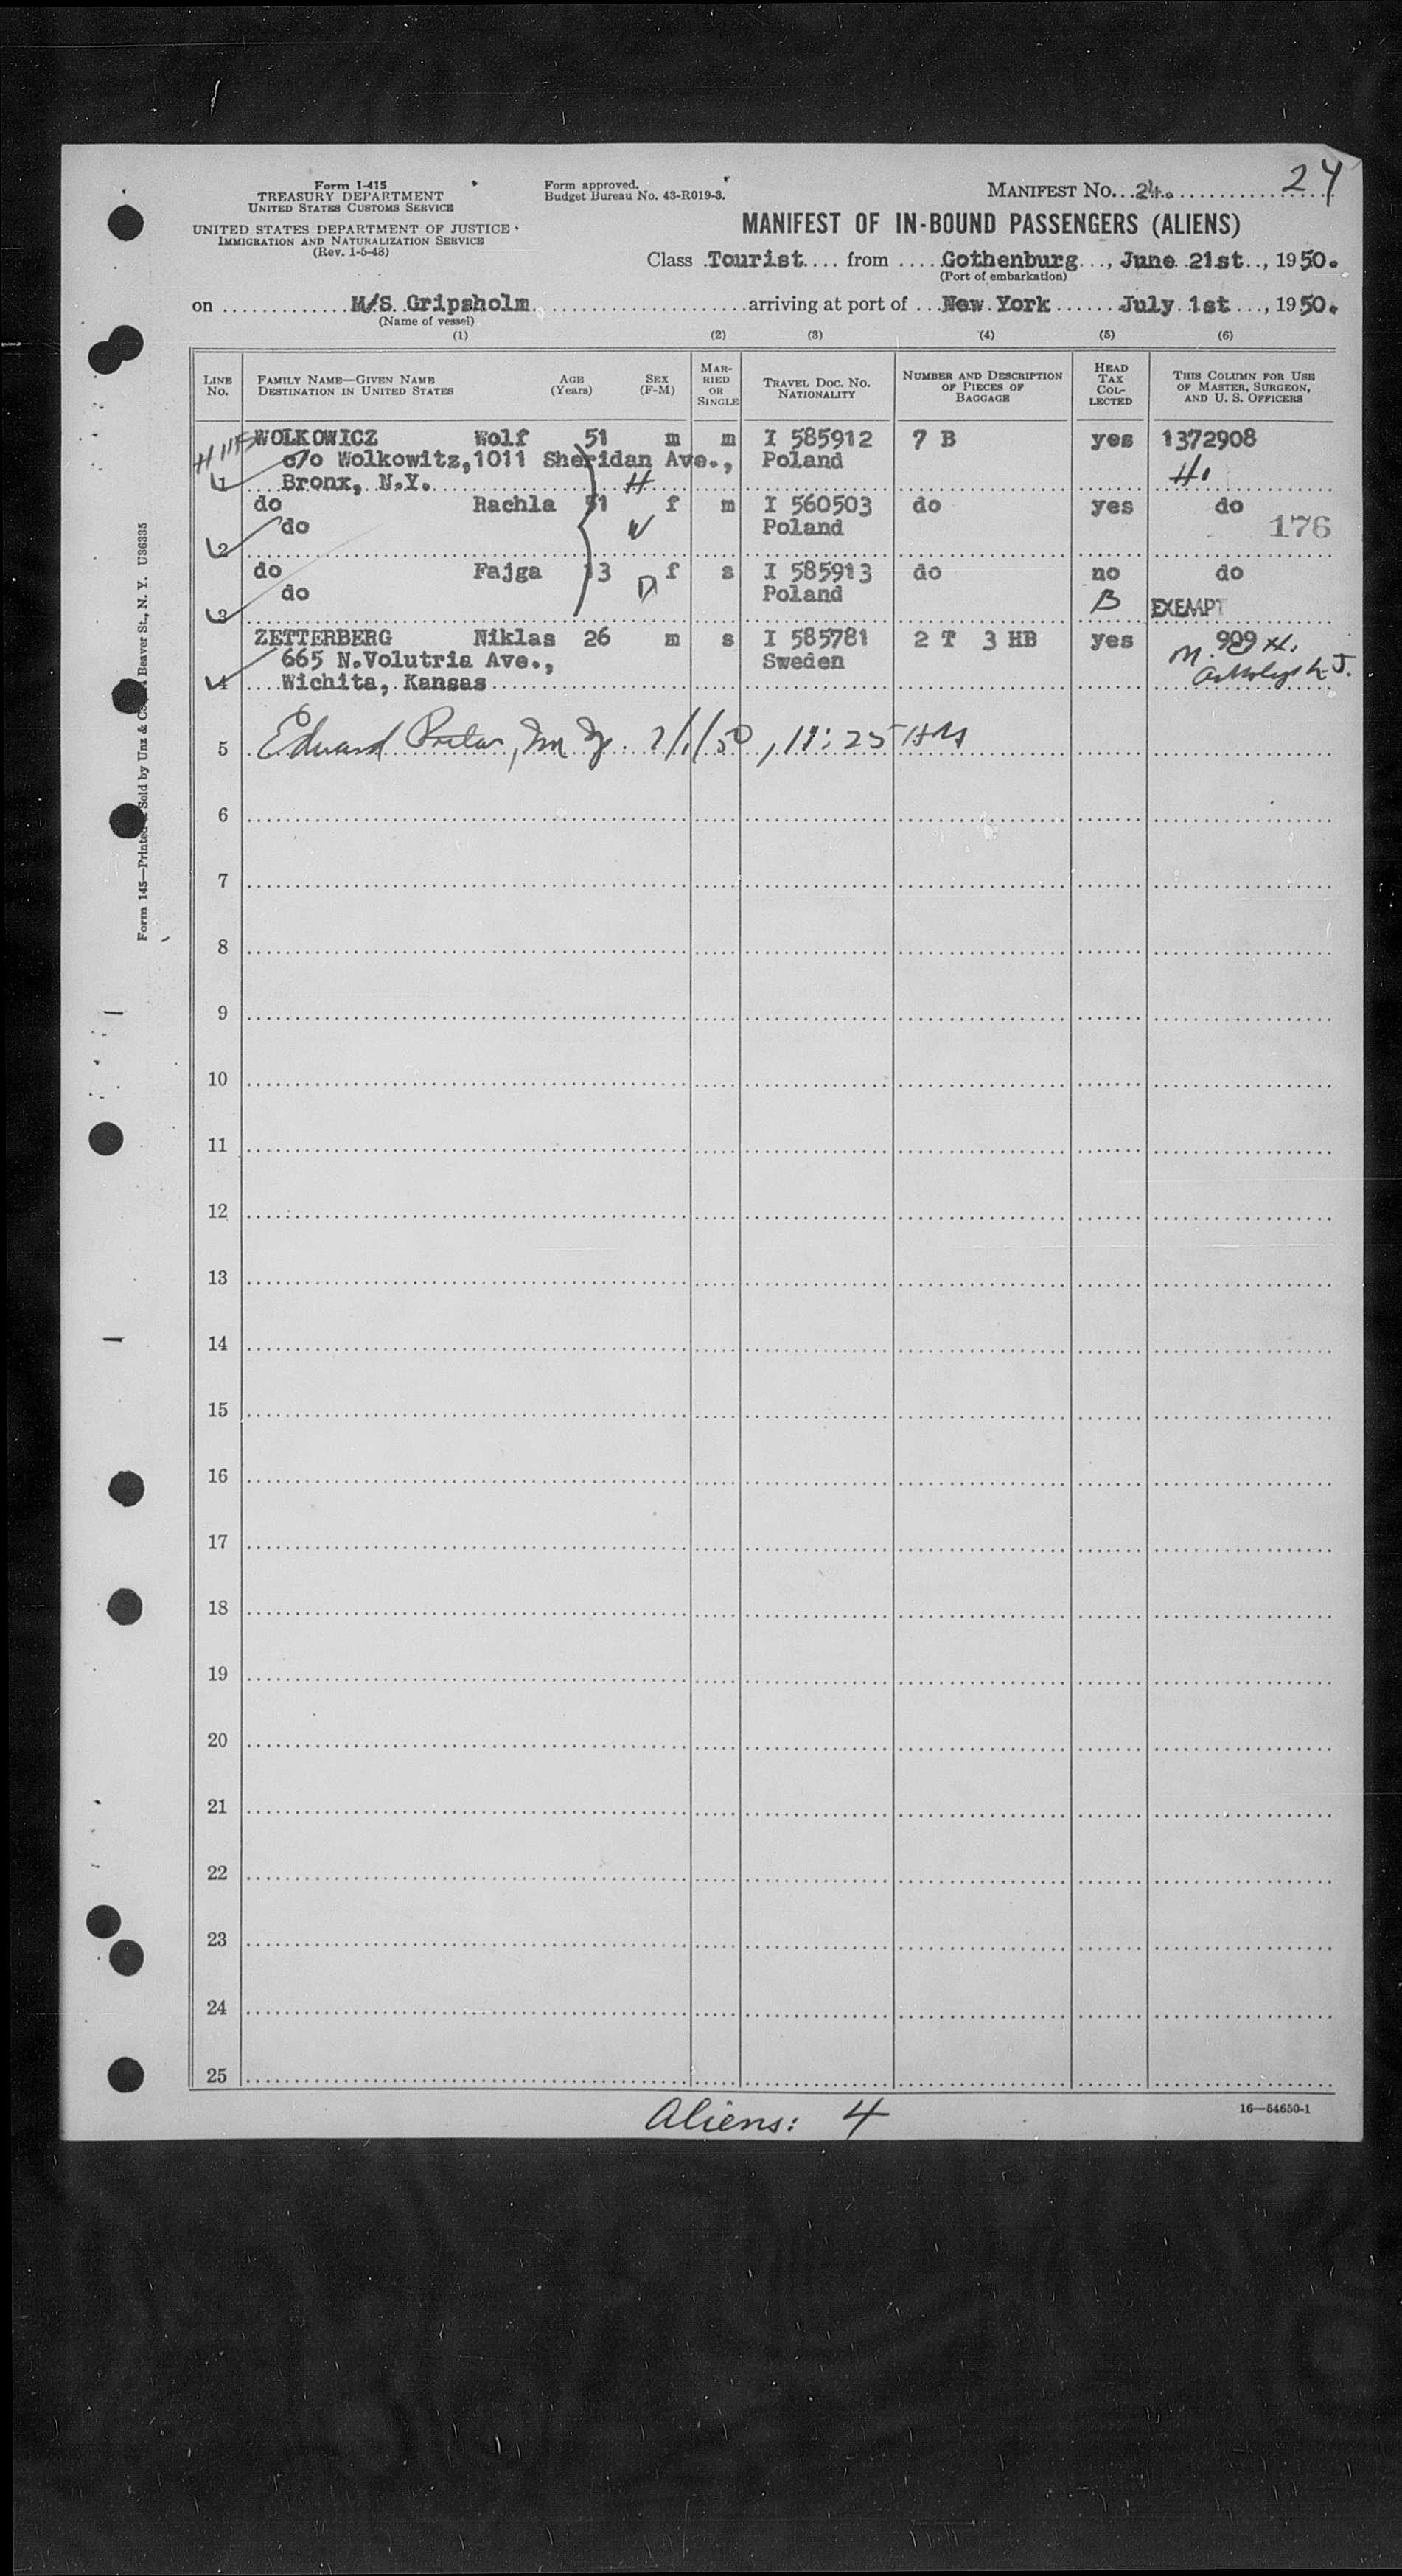 24
Form I-415
TREASURY DEPARTMENT
UNITED STATES CUSTOMS SERVICE
UNITED STATES DEPARTMENT OF JUSTICE
IMMIGRATION AND NATURALIZATION SERVICE
(Rev. 1-5-48)
Form approved.
Budget Bureau No. 43-R019-3.
MANIFEST NO. 24.
MANIFEST OF IN-BOUND PASSENGERS (ALIENS)
Class Tourist from Gothenburg, June 21st, 1950.
(Port of embarkation)
on M/S Gripsholm arriving at port of New York July 1st, 1950.
(Name of vessel)
(1) (2) (3) (4) (5) (6)
LINE NO. FAMILY NAME—GIVEN NAME DESTINATION IN UNITED STATES AGE (Years) SEX (F-M) MARRIED OR SINGLE TRAVEL DOC. NO. NATIONALITY NUMBER AND DESCRIPTION OF PIECES OF BAGGAGE HEAD TAX COLLECTED THIS COLUMN FOR USE OF MASTER, SURGEON, AND U. S. OFFICERS
WOLKOWICZ Wolf 51 m m I 585912 7 B yes 1372908
c/o Wolkowitz,1011 Sheridan Ave., Poland
1 Bronx, N.Y. H H.
do Rachla 51 f m I 560503 do yes do
do W Poland 176
2
do Fajga 13 f s I 585913 do no do
do D Poland B EXEMPT
3
ZETTERBERG Niklas 26 m s I 585781 2 T 3 HB yes 909 H.
665 N.Volutria Ave., Sweden M.
4 Wichita, Kansas
5 Edward 7/1/50, 11:25 AM
6
7
8
9
10
11
12
13
14
15
16
17
18
19
20
21
22
23
24
25
Aliens: 4
16—54650-1
Form 145—Printed Sold by Unz & Co. Beaver St., N. Y. U36335